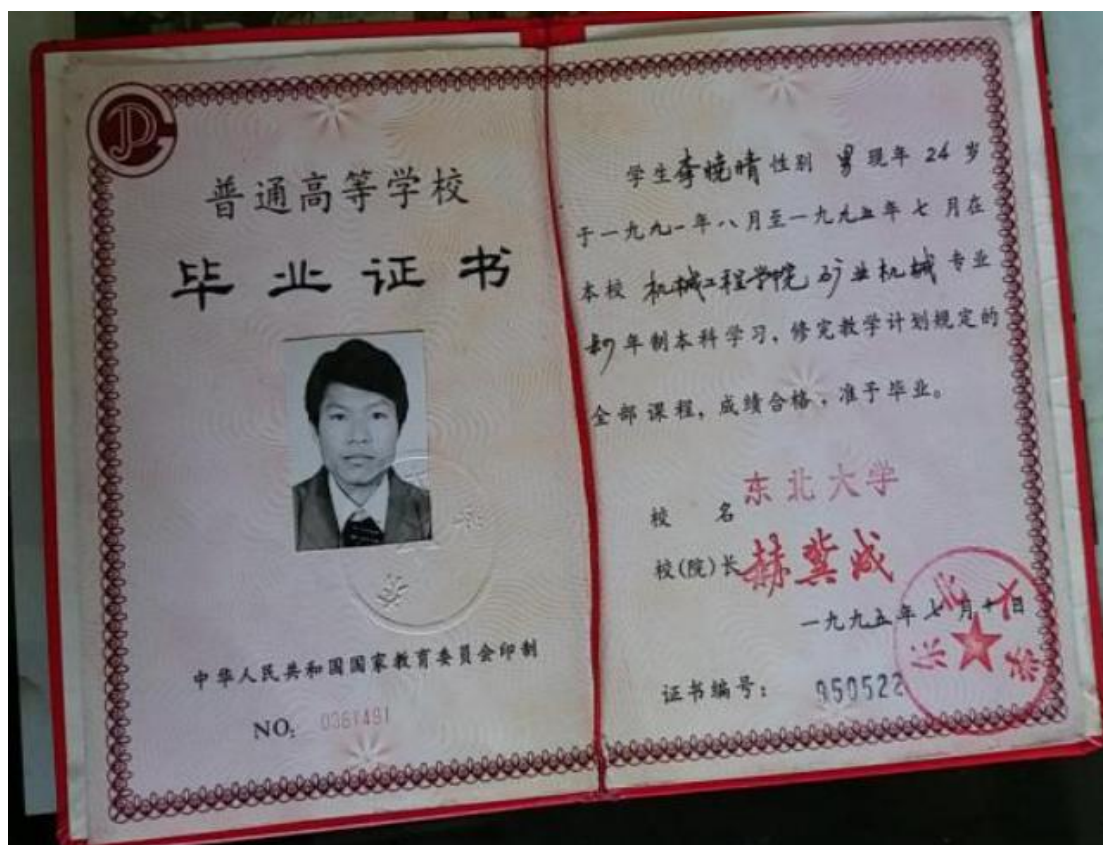 普通高等学校
毕业证书
中华人民共和国国家教育委员会印制
NO:
学生李晓晴性别 男 现年 24 岁
于一九九一年八月至一九九五年七月在
本校 机械工程学院 矿业机械 专业
四年制本科学习,修完教学计划规定的
全部课程,成绩合格,准予毕业。
校 名 东北大学
校(院)长 赫冀成
一九九五年七月十日
证书编号: 950522
东北大学